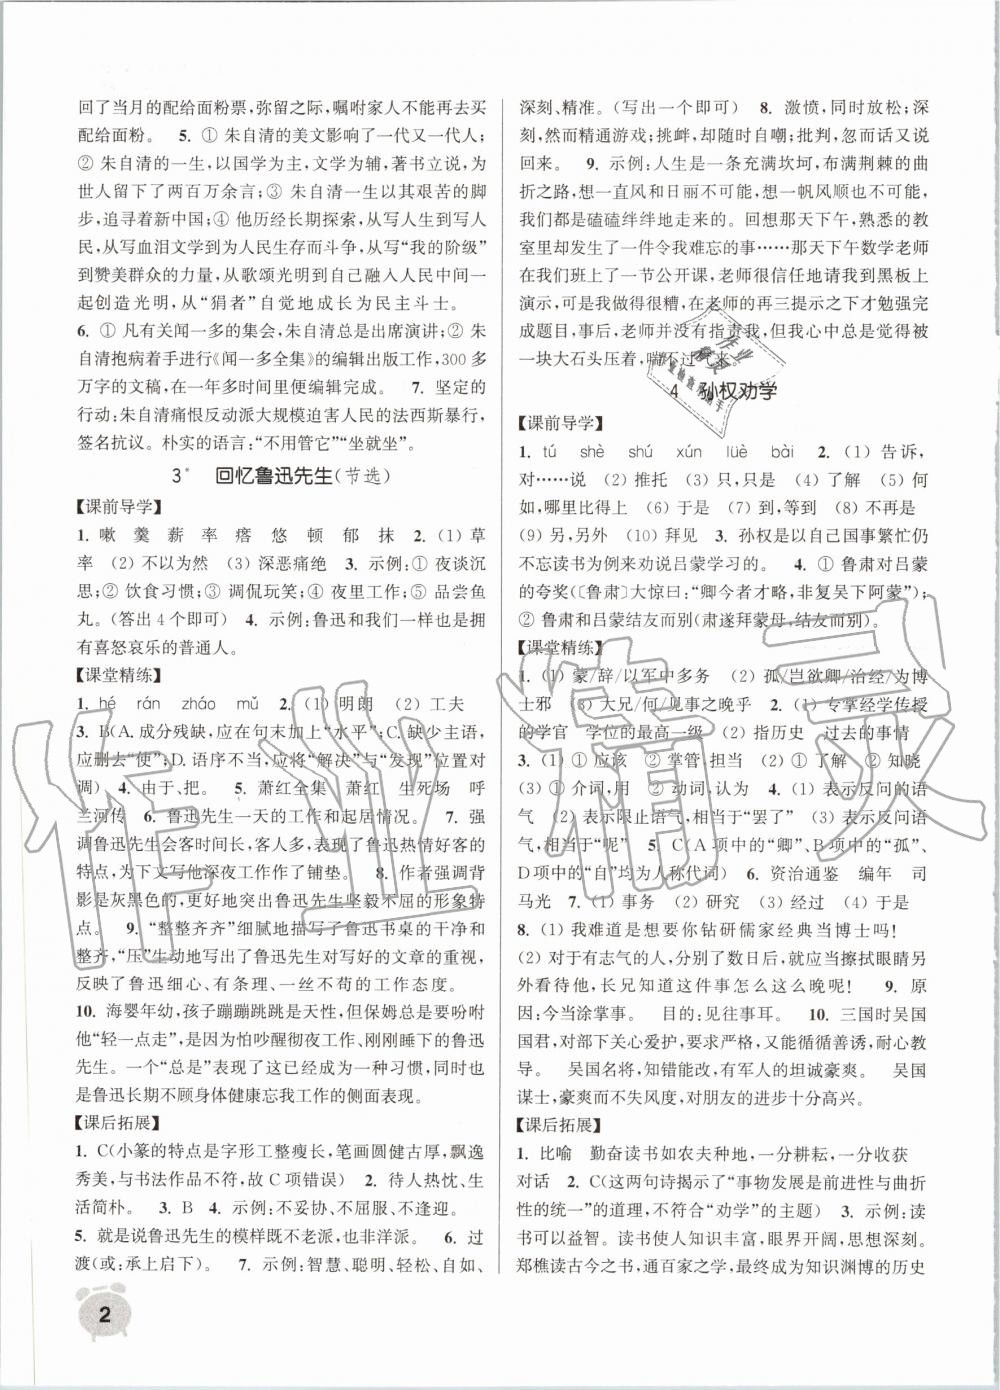 回了当月的配给面粉票,弥留之际,嘱咐家人不能再去买
配给面粉。 5. ① 朱自清的美文影响了一代又一代人;
② 朱自清的一生,以国学为主,文学为辅,著书立说,为
世人留下了两百万余言;③ 朱自清一生以其艰苦的脚
步,追寻着新中国;④ 他历经长期探索,从写人生到写人
民,从写血泪文学到为人民生存而斗争,从写“我的阶级”
到赞美群众的力量,从歌颂光明到自己融入人民中间一
起创造光明,从“狷者”自觉地成长为民主斗士。
6. ① 凡有关闻一多的集会,朱自清总是出席演讲;② 朱
自清抱病着手进行《闻一多全集》的编辑出版工作,300 多
万字的文稿,在一年多时间里便编辑完成。 7. 坚定的
行动:朱自清痛恨反动派大规模迫害人民的法西斯暴行,
签名抗议。朴实的语言:“不用管它”“坐就坐”。
3* 回忆鲁迅先生(节选)
【课前导学】
1. 嗽 羹 薪 率 瘩 悠 顿 郁 抹 2. (1) 草
率 (2) 不以为然 (3) 深恶痛绝 3. 示例:① 夜谈沉
思;② 饮食习惯;③ 调侃玩笑;④ 夜里工作;⑤ 品尝鱼
丸。(答出4个即可) 4. 示例:鲁迅和我们一样也是拥
有喜怒哀乐的普通人。
【课堂精练】
1. hé rán zháo mǔ 2. (1) 明朗 (2) 工夫
3. B(A. 成分残缺,应在句末加上“水平”;C. 缺少主语,
应删去“使”;D. 语序不当,应将“解决”与“发现”位置对
调) 4. 由于、把。 5. 萧红全集 萧红 生死场 呼
兰河传 6. 鲁迅先生一天的工作和起居情况。 7. 强
调鲁迅先生会客时间长,客人多,表现了鲁迅热情好客的
特点,为下文写他深夜工作作了铺垫。 8. 作者强调背
影是灰黑色的,更好地突出鲁迅先生坚毅不屈的形象特
点。 9. “整整齐齐”细腻地描写了鲁迅书桌的干净和
整齐,“压”生动地写出了鲁迅先生对写好的文章的重视,
反映了鲁迅细心、有条理、一丝不苟的工作态度。
10. 海婴年幼,孩子蹦蹦跳跳是天性,但保姆总是吩咐
他“轻一点走”,是因为怕吵醒彻夜工作、刚刚睡下的鲁迅
先生。“总是”一词表现了这已经成为一种习惯,同时表现
出鲁迅长期不顾身体健康忘我工作的侧面表现。
【课后拓展】
1. C(小篆的特点是字形工整瘦长,笔画圆健古厚,飘逸
秀美,与书法作品不符,故C项错误) 2. 待人热忱、生
活简朴。 3. B 4. 示例:不妥协、不屈服、不逢迎。
5. 就是说鲁迅先生的模样既不老派,也非洋派。 6. 过
渡(或:承上启下)。 7. 示例:智慧、聪明、轻松、自如、
2
深刻、精准。(写出一个即可) 8. 激愤,同时放松;深
刻,然而精通游戏;挑衅,却同时自嘲;批判,忽而又说
回来。 9. 示例:人生是一条充满坎坷,布满荆棘的曲
折之路,想一直风和日丽不可能,想一帆风顺也不可能,
我们都是磕磕绊绊地走来的。回想那天下午,熟悉的教
室里却发生了一件令我难忘的事……那天下午数学老师
在我们班上了一节公开课,老师很信任地请我到黑板上
演示,可我却犹豫不决,在老师的再三提示之下才勉强完
成题目,事后,老师并没有指责我,但我心中总是觉得被
一块大石头压着,喘不过气来。
4 孙权劝学
【课前导学】
1. tú shè shú xún lüè bài 2. (1) 告诉,
对……说 (2) 推托 (3) 只,只是 (4) 研究 (5) 何
如,哪里比得上 (6) 于是 (7) 到,等到 (8) 不再是
(9) 另,另外 (10) 拜见 3. 孙权是以自己国事繁忙仍
不忘读书为例来劝说吕蒙学习的。 4. ① 鲁肃对吕蒙
的夸奖(〔鲁肃〕大惊曰:“卿今者才略,非复吴下阿蒙”);
② 鲁肃和吕蒙结友而别(肃遂拜蒙母,结友而别)。
【课堂精练】
1. (1) 蒙/辞/以军中多务 (2) 孤/岂欲卿/治经/为博
士邪 (3) 大兄/何/见事之晚乎 2. (1) 专掌经学传授
的学官 学位的最高一级 (2) 指历史 过去的事情
3. (1) ① 应该 ② 掌管,担当 (2) ① 了解 ② 知晓
(3) ① 介词,用 ② 动词,认为 4. (1) 表示反问的语
气 (2) 表示限止语气,相当于“罢了” (3) 表示反问语
气,相当于“呢” 5. C(A项中的“卿”、B项中的“孤”、
D项中的“自”均为人称代词) 6. 资治通鉴 编年 司
马光 7. (1) 事务 (2) 研究 (3) 经过 (4) 于是
8. (1) 我难道是想要你钻研儒家经典当博士吗!
(2) 对于有志气的人,分别了数日后,就应当擦拭眼睛另
外看待他,长兄知道这件事怎么这么晚呢! 9. 原
因:今当涂掌事。 目的:见往事耳。 10. 三国时吴国
国君,对部下关心爱护,要求严格,又能循循善诱,耐心教
导。 吴国名将,知错能改,有军人的坦诚豪爽。 吴国
谋士,豪爽而不失风度,对朋友的进步十分高兴。
【课后拓展】
1. 比喻 勤奋读书如农夫种地,一分耕耘,一分收获
对话 2. C(这两句诗揭示了“事物发展是前进性与曲折
性的统一”的道理,不符合“劝学”的主题) 3. 示例:读
书可以益智。读书让人知识丰富,眼界开阔,思想深刻。
郑樵读古今之书,通百家之学,最终成为知识渊博的历史
作业精灵